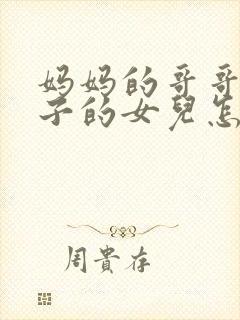 妈妈的哥哥
子的女兒怎
周貴存